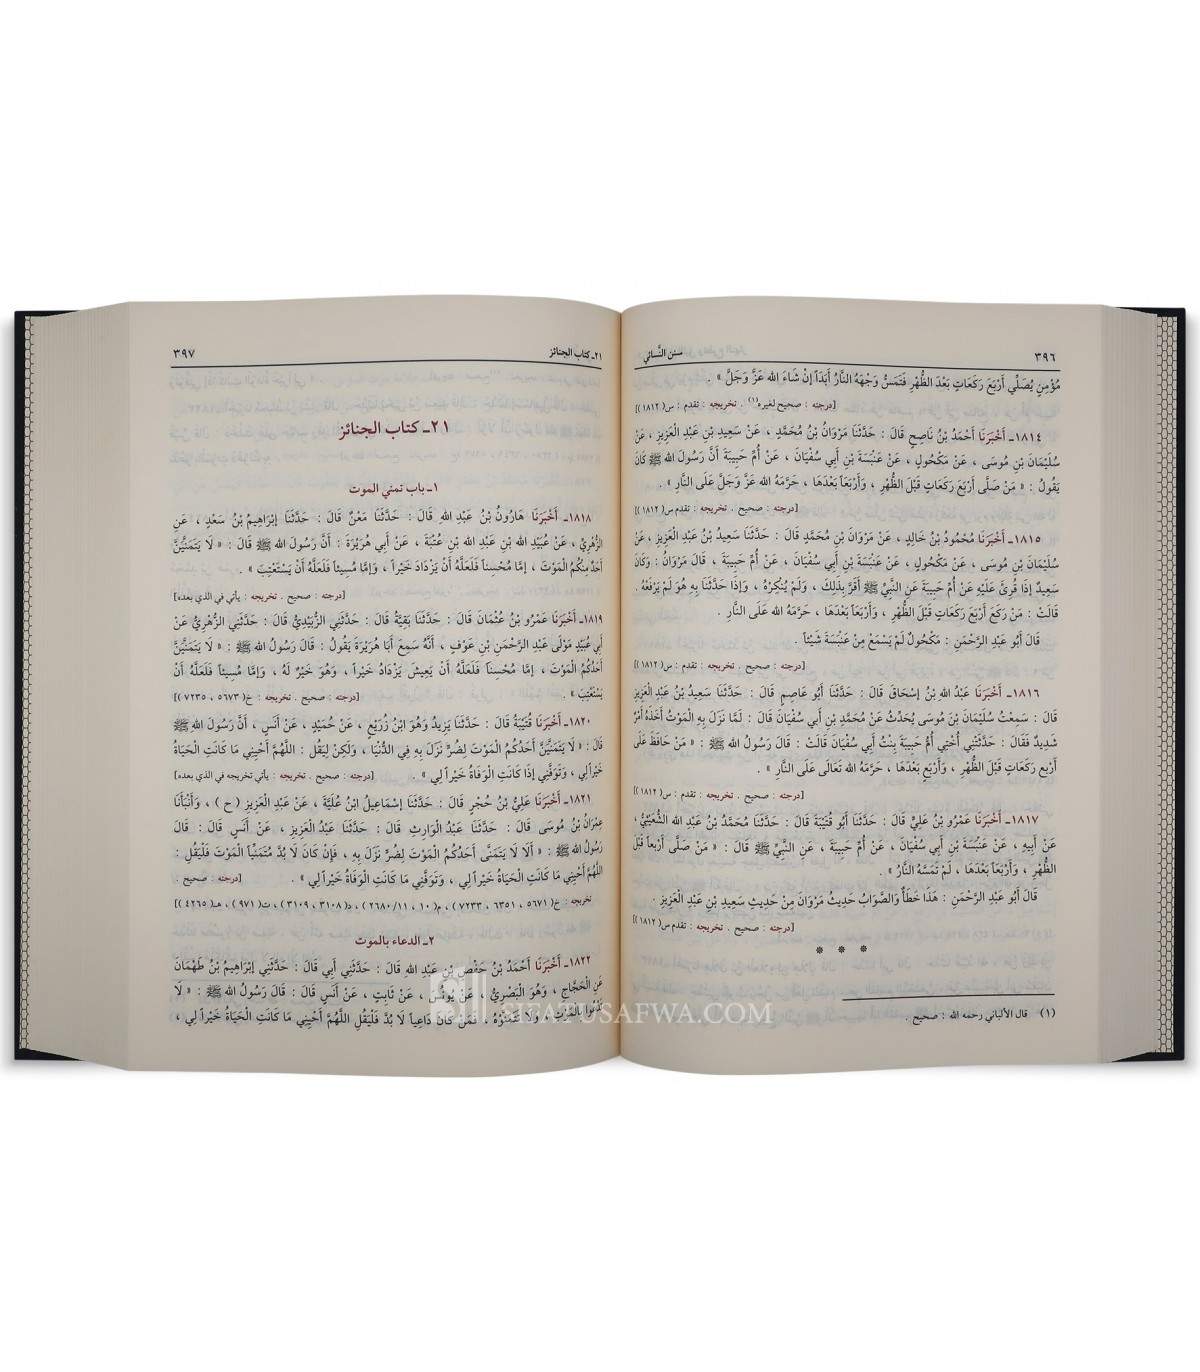 ٣٩٦ سنن النَّسائي
مُؤْمِنٍ يُصَلِّي أَرْبَعَ رَكَعَاتٍ بَعْدَ الظُّهْرِ فَتَمَسُّ وَجْهَهُ النَّارُ أَبَداً إنْ شَاءَ الله عَزَّ وَجَلَّ » .
[درجته : صحيح لغيره(١) تخريجه : تقدم : س( ١٨١٢ )]
١٨١٤ـ أَخْبَرَنَا أَحْمَدُ بْنُ نَاصِحٍ قَالَ : حَدَّثَنَا مَرْوَانُ بْنُ مُحَمَّدٍ ، عَنْ سَعِيدِ بْنِ عَبْدِ الْعَزِيزِ ، عَنْ
سُلَيْمَانَ بْنِ مُوسَى ، عَنْ مَكْحُولٍ ، عَنْ عَنْبَسَةَ بْنِ أَبِي سُفْيَانَ ، عَنْ أُمِّ حَبِيبَةَ أَنَّ رَسُولَ الله ﷺ كَانَ
يَقُولُ : « مَنْ صَلَّى أَرْبَعَ رَكَعَاتٍ قَبْلَ الظُّهْرِ ، وَأَرْبَعاً بَعْدَهَا ، حَرَّمَهُ الله عَزَّ وَجَلَّ عَلَى النَّارِ » .
[درجته : صحيح . تخريجه : تقدم س( ١٨١٢ )]
١٨١٥ـ أَخْبَرَنَا مَحْمُودُ بْنُ خَالِدٍ ، عَنْ مَرْوَانَ بْنِ مُحَمَّدٍ قَالَ : حَدَّثَنَا سَعِيدُ بْنُ عَبْدِ الْعَزِيزِ ، عَنْ
سُلَيْمَانَ بْنِ مُوسَى ، عَنْ مَكْحُولٍ ، عَنْ عَنْبَسَةَ بْنِ أَبِي سُفْيَانَ ، عَنْ أُمِّ حَبِيبَةَ ، قَالَ مَرْوَانُ : وَكَانَ
سَعِيدٌ إذَا قُرِئَ عَلَيْهِ عَنْ أُمِّ حَبِيبَةَ عَنِ النَّبِيِّ ﷺ أَقَرَّ بِذَلِكَ ، وَلَمْ يُنْكِرْهُ ، وَإذَا حَدَّثَنَا بِهِ هُوَ لَمْ يَرْفَعْهُ .
قَالَتْ : مَنْ رَكَعَ أَرْبَعَ رَكَعَاتٍ قَبْلَ الظُّهْرِ ، وَأَرْبَعاً بَعْدَهَا ، حَرَّمَهُ الله عَلَى النَّارِ .
قَالَ أَبُو عَبْدِ الرَّحْمَنِ : مَكْحُولٌ لَمْ يَسْمَعْ مِنْ عَنْبَسَةَ شَيْئاً .
[درجته : صحيح . تخريجه : تقدم : س( ١٨١٢ )]
١٨١٦ـ أَخْبَرَنَا عَبْدُ الله بْنُ إسْحَاقَ قَالَ : حَدَّثَنَا أَبُو عَاصِمٍ قَالَ : حَدَّثَنَا سَعِيدُ بْنُ عَبْدِ الْعَزِيزِ
قَالَ : سَمِعْتُ سُلَيْمَانَ بْنَ مُوسَى يُحَدِّثُ عَنْ مُحَمَّدِ بْنِ أَبِي سُفْيَانَ قَالَ : لَمَّا نَزَلَ بِهِ الْمَوْتُ أَخَذَهُ أَمْرٌ
شَدِيدٌ فَقَالَ : حَدَّثَتْنِي أُخْتِي أُمُّ حَبِيبَةَ بِنْتُ أَبِي سُفْيَانَ قَالَتْ : قَالَ رَسُولُ الله ﷺ : « مَنْ حَافَظَ عَلَى
أَرْبَعِ رَكَعَاتٍ قَبْلَ الظُّهْرِ ، وَأَرْبَعٍ بَعْدَهَا ، حَرَّمَهُ الله تَعَالَى عَلَى النَّارِ » .
[درجته : صحيح . تخريجه : تقدم : س( ١٨١٢ )]
١٨١٧ـ أَخْبَرَنَا عَمْرُو بْنُ عَلِيٍّ قَالَ : حَدَّثَنَا أَبُو قُتَيْبَةَ قَالَ : حَدَّثَنَا مُحَمَّدُ بْنُ عَبْدِ الله الشُّعَيْثِيُّ ،
عَنْ أَبِيهِ ، عَنْ عَنْبَسَةَ بْنِ أَبِي سُفْيَانَ ، عَنْ أُمِّ حَبِيبَةَ ، عَنِ النَّبِيِّ ﷺ قَالَ : « مَنْ صَلَّى أَرْبَعاً قَبْلَ
الظُّهْرِ ، وَأَرْبَعاً بَعْدَهَا ، لَمْ تَمَسَّهُ النَّارُ » .
قَالَ أَبُو عَبْدِ الرَّحْمَنِ : هَذَا خَطَأٌ وَالصَّوَابُ حَدِيثُ مَرْوَانَ مِنْ حَدِيثِ سَعِيدِ بْنِ عَبْدِ الْعَزِيزِ .
[درجته : صحيح . تخريجه : تقدم س( ١٨١٢ )]
* * *
(١) قال الألباني رحمه الله : صحيح .
٢١ـ كتاب الجنائز ٣٩٧
٢١ـ كتاب الجنائز
١ـ باب تمني الموت
١٨١٨ـ أَخْبَرَنَا هَارُونُ بْنُ عَبْدِ الله قَالَ : حَدَّثَنَا مَعْنٌ قَالَ : حَدَّثَنَا إبْرَاهِيمُ بْنُ سَعْدٍ ، عَنِ
الزُّهْرِيِّ ، عَنْ عُبَيْدِ الله بْنِ عَبْدِ الله بْنِ عُتْبَةَ ، عَنْ أَبِي هُرَيْرَةَ : أَنَّ رَسُولَ الله ﷺ قَالَ : « لَا يَتَمَنَّيَنَّ
أَحَدٌ مِنْكُمُ الْمَوْتَ ، إمَّا مُحْسِناً فَلَعَلَّهُ أَنْ يَزْدَادَ خَيْراً ، وَإمَّا مُسِيئاً فَلَعَلَّهُ أَنْ يَسْتَعْتِبَ » .
[درجته : صحيح . تخريجه : يأتي في الذي بعده]
١٨١٩ـ أَخْبَرَنَا عَمْرُو بْنُ عُثْمَانَ قَالَ : حَدَّثَنَا بَقِيَّةُ قَالَ : حَدَّثَنِي الزُّبَيْدِيُّ قَالَ : حَدَّثَنِي الزُّهْرِيُّ عَنْ
أَبِي عُبَيْدٍ مَوْلَى عَبْدِ الرَّحْمَنِ بْنِ عَوْفٍ ، أَنَّهُ سَمِعَ أَبَا هُرَيْرَةَ يَقُولُ : قَالَ رَسُولُ الله ﷺ : « لَا يَتَمَنَّيَنَّ
أَحَدُكُمُ الْمَوْتَ ، إمَّا مُحْسِناً فَلَعَلَّهُ أَنْ يَعِيشَ يَزْدَادُ خَيْراً ، وَهُوَ خَيْرٌ لَهُ ، وَإمَّا مُسِيئاً فَلَعَلَّهُ أَنْ
يَسْتَعْتِبَ » . [درجته : صحيح . تخريجه : خ( ٥٦٧٣ ، ٧٢٣٥ )]
١٨٢٠ـ أَخْبَرَنَا قُتَيْبَةُ قَالَ : حَدَّثَنَا يَزِيدُ وَهُوَ ابْنُ زُرَيْعٍ ، عَنْ حُمَيْدٍ ، عَنْ أَنَسٍ ، أَنَّ رَسُولَ الله ﷺ
قَالَ : « لَا يَتَمَنَّيَنَّ أَحَدُكُمُ الْمَوْتَ لِضُرٍّ نَزَلَ بِهِ فِي الدُّنْيَا ، وَلَكِنْ لِيَقُلْ : اللَّهُمَّ أَحْيِنِي مَا كَانَتِ الْحَيَاةُ
خَيْراً لِي ، وَتَوَفَّنِي إذَا كَانَتِ الْوَفَاةُ خَيْراً لِي » . [درجته : صحيح . تخريجه : يأتي تخريجه في الذي بعده]
١٨٢١ـ أَخْبَرَنَا عَلِيُّ بْنُ حُجْرٍ قَالَ : حَدَّثَنَا إسْمَاعِيلُ ابْنُ عُلَيَّةَ ، عَنْ عَبْدِ الْعَزِيزِ ( ح ) ، وَأَنْبَأَنَا
عِمْرَانُ بْنُ مُوسَى قَالَ : حَدَّثَنَا عَبْدُ الْوَارِثِ قَالَ : حَدَّثَنَا عَبْدُ الْعَزِيزِ ، عَنْ أَنَسٍ قَالَ : قَالَ
رَسُولُ الله ﷺ : « أَلَا لَا يَتَمَنَّى أَحَدُكُمُ الْمَوْتَ لِضُرٍّ نَزَلَ بِهِ ، فَإنْ كَانَ لَا بُدَّ مُتَمَنِّياً الْمَوْتَ فَلْيَقُلِ :
اللَّهُمَّ أَحْيِنِي مَا كَانَتِ الْحَيَاةُ خَيْراً لِي ، وَتَوَفَّنِي مَا كَانَتِ الْوَفَاةُ خَيْراً لِي » . [درجته : صحيح .
تخريجه : خ( ٥٦٧١ ، ٦٣٥١ ، ٧٢٣٣ ) ، م( ١٠ ، ١١/٢٦٨٠ ) ، د( ٣١٠٨ ، ٣١٠٩ ) ، ت( ٩٧١ ) ، هـ( ٤٢٦٥ )]
٢ـ الدعاء بالموت
١٨٢٢ـ أَخْبَرَنَا أَحْمَدُ بْنُ حَفْصِ بْنِ عَبْدِ الله قَالَ : حَدَّثَنِي أَبِي قَالَ : حَدَّثَنِي إبْرَاهِيمُ بْنُ طَهْمَانَ
عَنِ الْحَجَّاجِ ، وَهُوَ الْبَصْرِيُّ ، عَنْ يُونُسَ ، عَنْ ثَابِتٍ ، عَنْ أَنَسٍ قَالَ : قَالَ رَسُولُ الله ﷺ : « لَا
تَدْعُوا بِالْمَوْتِ ، وَلَا تَتَمَنَّوْهُ ، فَمَنْ كَانَ دَاعِياً لَا بُدَّ فَلْيَقُلِ اللَّهُمَّ أَحْيِنِي مَا كَانَتِ الْحَيَاةُ خَيْراً لِي ،
SIFATUSAFWA.COM